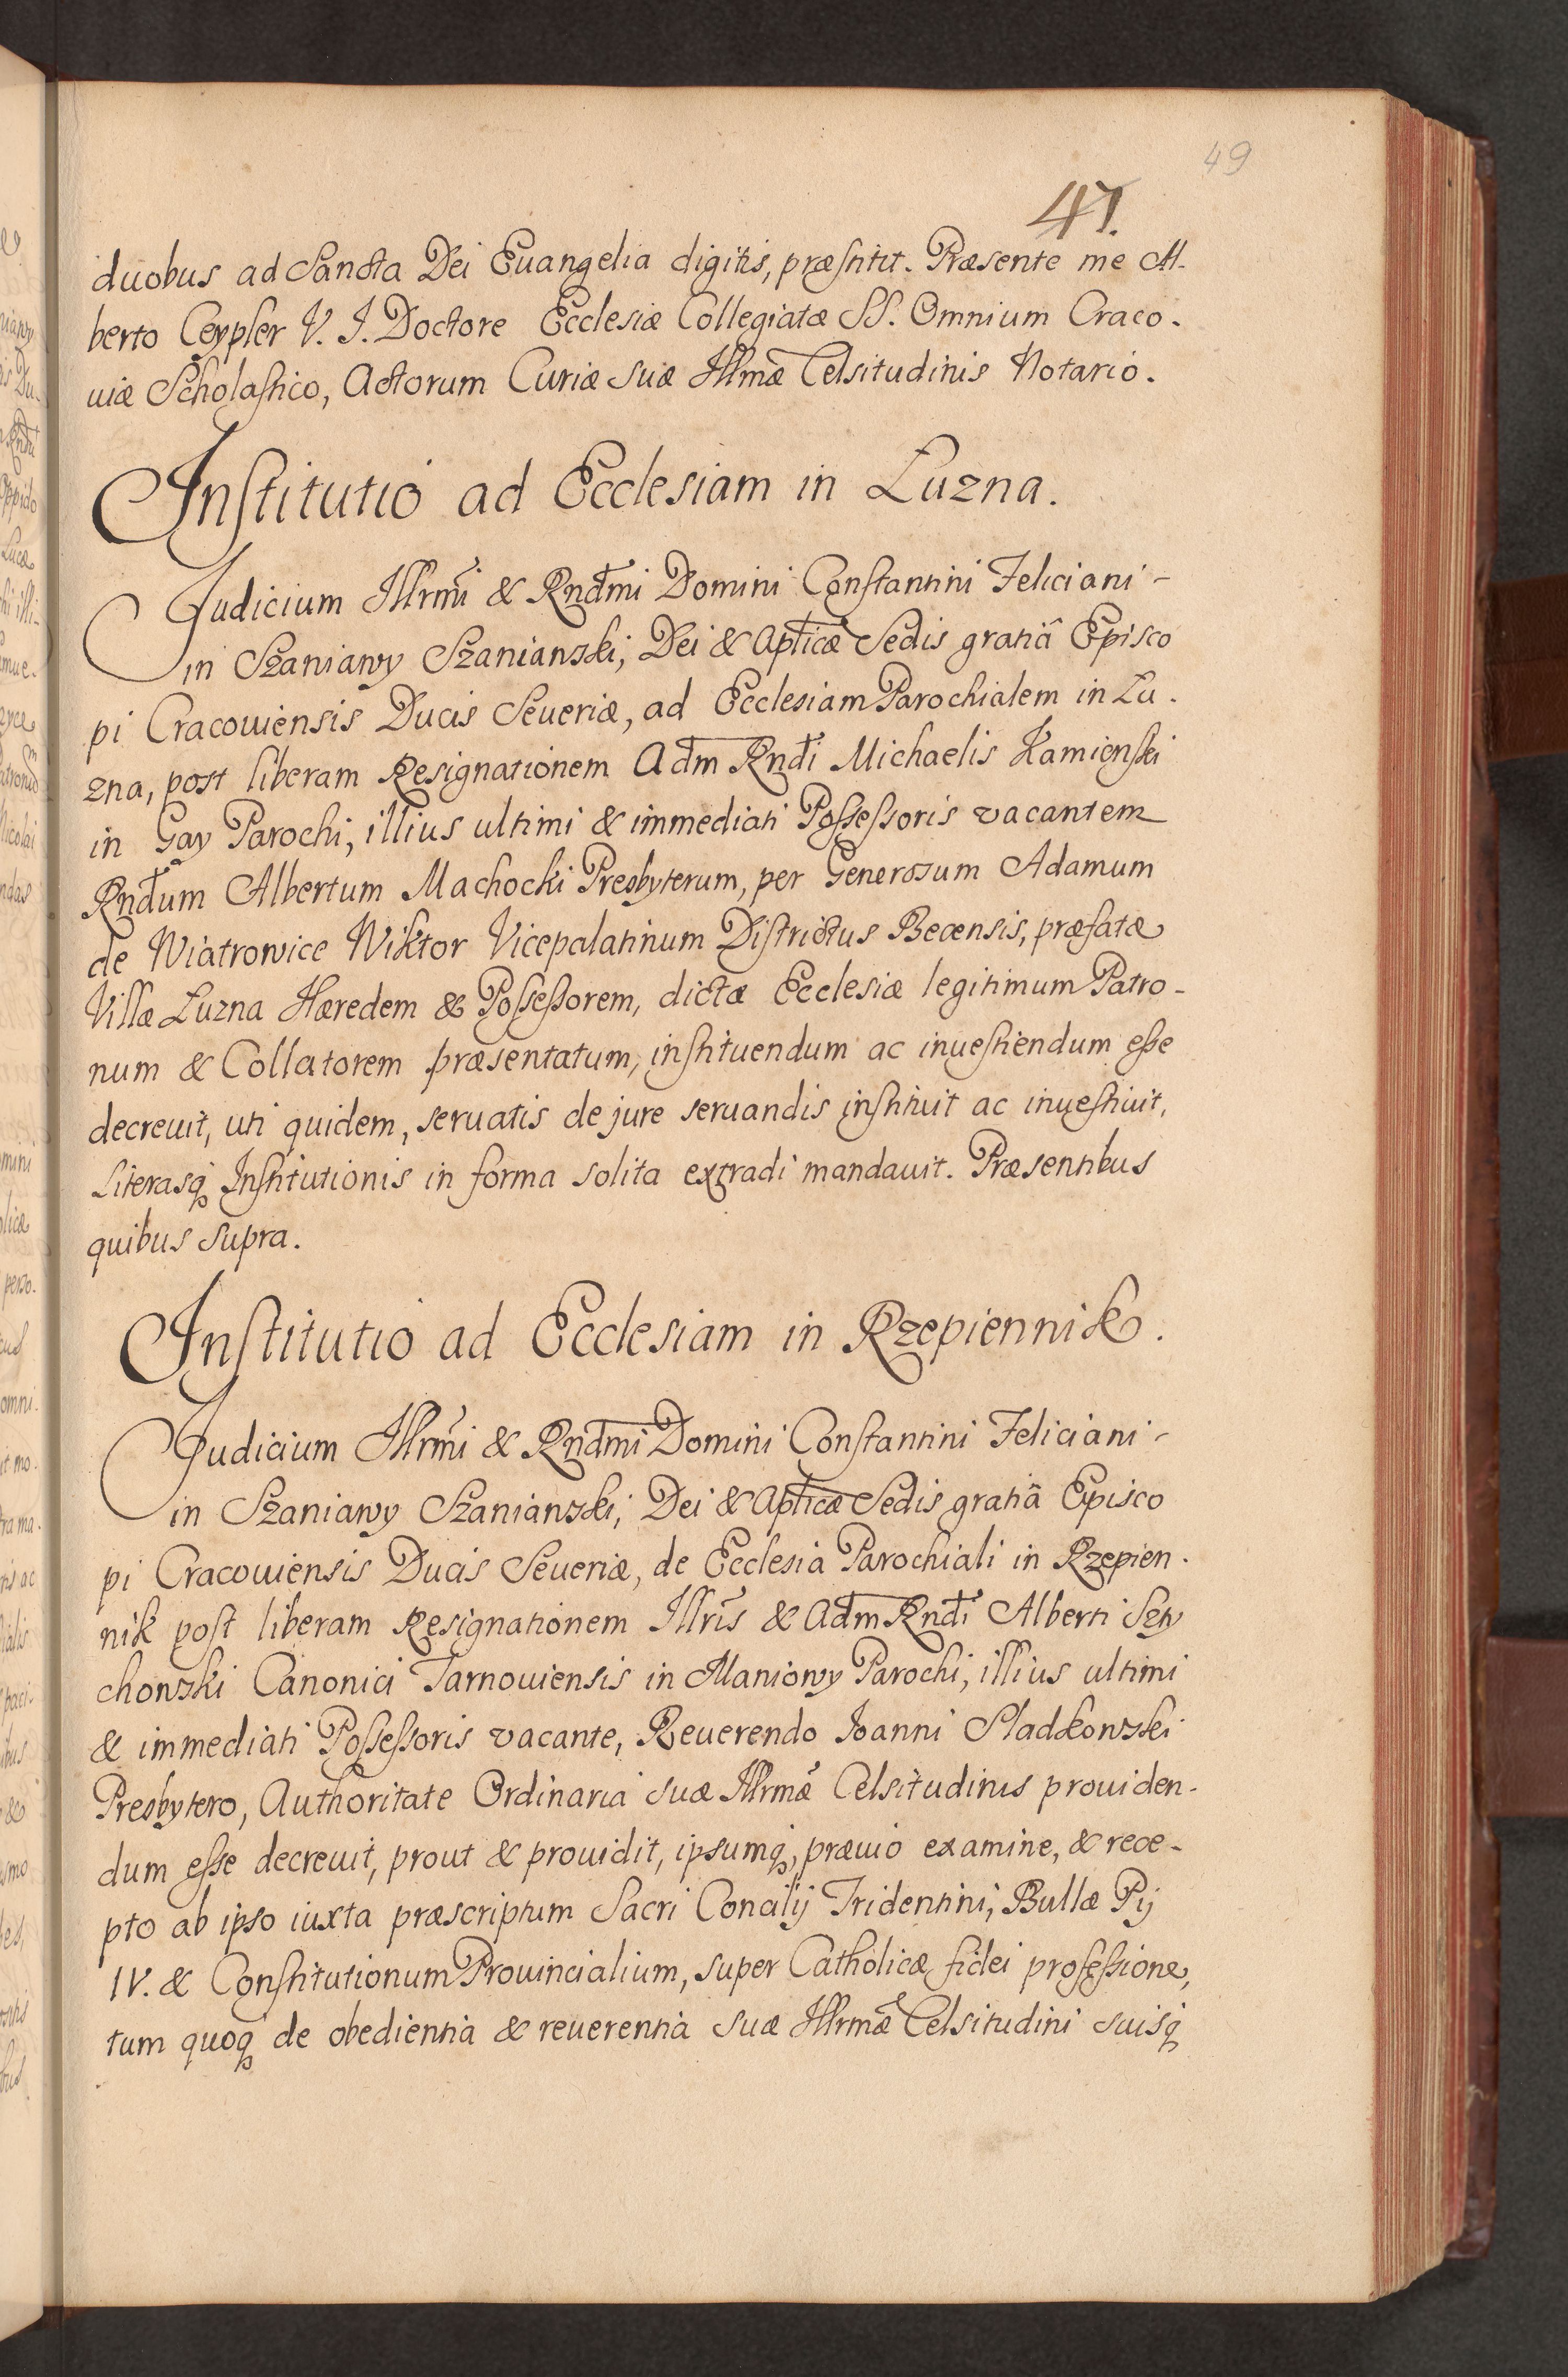 49
47.
duobus ad Sancta Dei Euangelia digitis, præstitit. Præsente me Al-
berto Ceypler V. J. Doctore Ecclesiæ Collegiatæ SS. Omnium Craco-
uiæ Scholastico, Actorum Curiæ suæ Illrmæ Celsitudinis Notario.
Institutio ad Ecclesiam in Luzna.
Judicium Illrmi & Rndmi Domini Constantini Feliciani -
in Szaniawy Szaniawski, Dei & Apticæ Sedis gratiâ Episco
pi Cracouiensis Ducis Seueriæ, ad Ecclesiam Parochialem in Lu-
zna, post liberam Resignationem Adm Rndi Michaelis Kamienski
in Gay Parochi, illius ultimi & immediati Possessoris vacantem
Rndum Albertum Machocki Presbyterum, per Generosum Adamum
de Wiatrowice Wiktor Vicepalatinum Districtus Becensis, præfatæ
Villæ Luzna Hæredem & Possessorem, dictæ Ecclesiæ legitimum Patro-
num & Collatorem præsentatum, instituendum ac inuestiendum esse
decreuit, uti quidem, seruatis de jure seruandis instituit ac inuestiuit,
Literasq Institutionis in forma solita extradi mandauit. Præsentibus
quibus supra.
Institutio ad Ecclesiam in Rzepiennik.
Judicium Illrmi & Rndmi Domini Constantini Feliciani -
in Szaniawy Szaniawski, Dei & Apticæ Sedis gratiâ Episco
pi Cracouiensis Ducis Seueriæ, de Ecclesia Parochiali in Rzepien-
nik post liberam Resignationem Illris & Adm Rndi Alberti Szy
chowski Canonici Tarnouiensis in Maniowy Parochi, illius ultimi
& immediati Possessoris vacante, Reuerendo Joanni Sladkowski
Presbytero, Authoritate Ordinaria suæ Illrmæ Celsitudinis prouiden-
dum esse decreuit, prout & prouidit, ipsumq, præuio examine, & rece-
pto ab ipso iuxta præscriptum Sacri Concilij Tridentini, Bullæ Pij
IV. & Constitutionum Prouincialium, super Catholicæ fidei professione,
tum quoq de obedientia & reuerentia suæ Illrmæ Celsitudini suisq